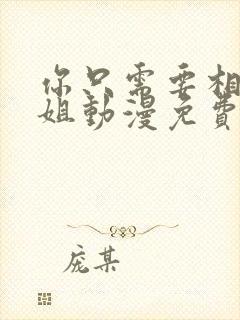 你只需要相
姐動漫免費
庞某